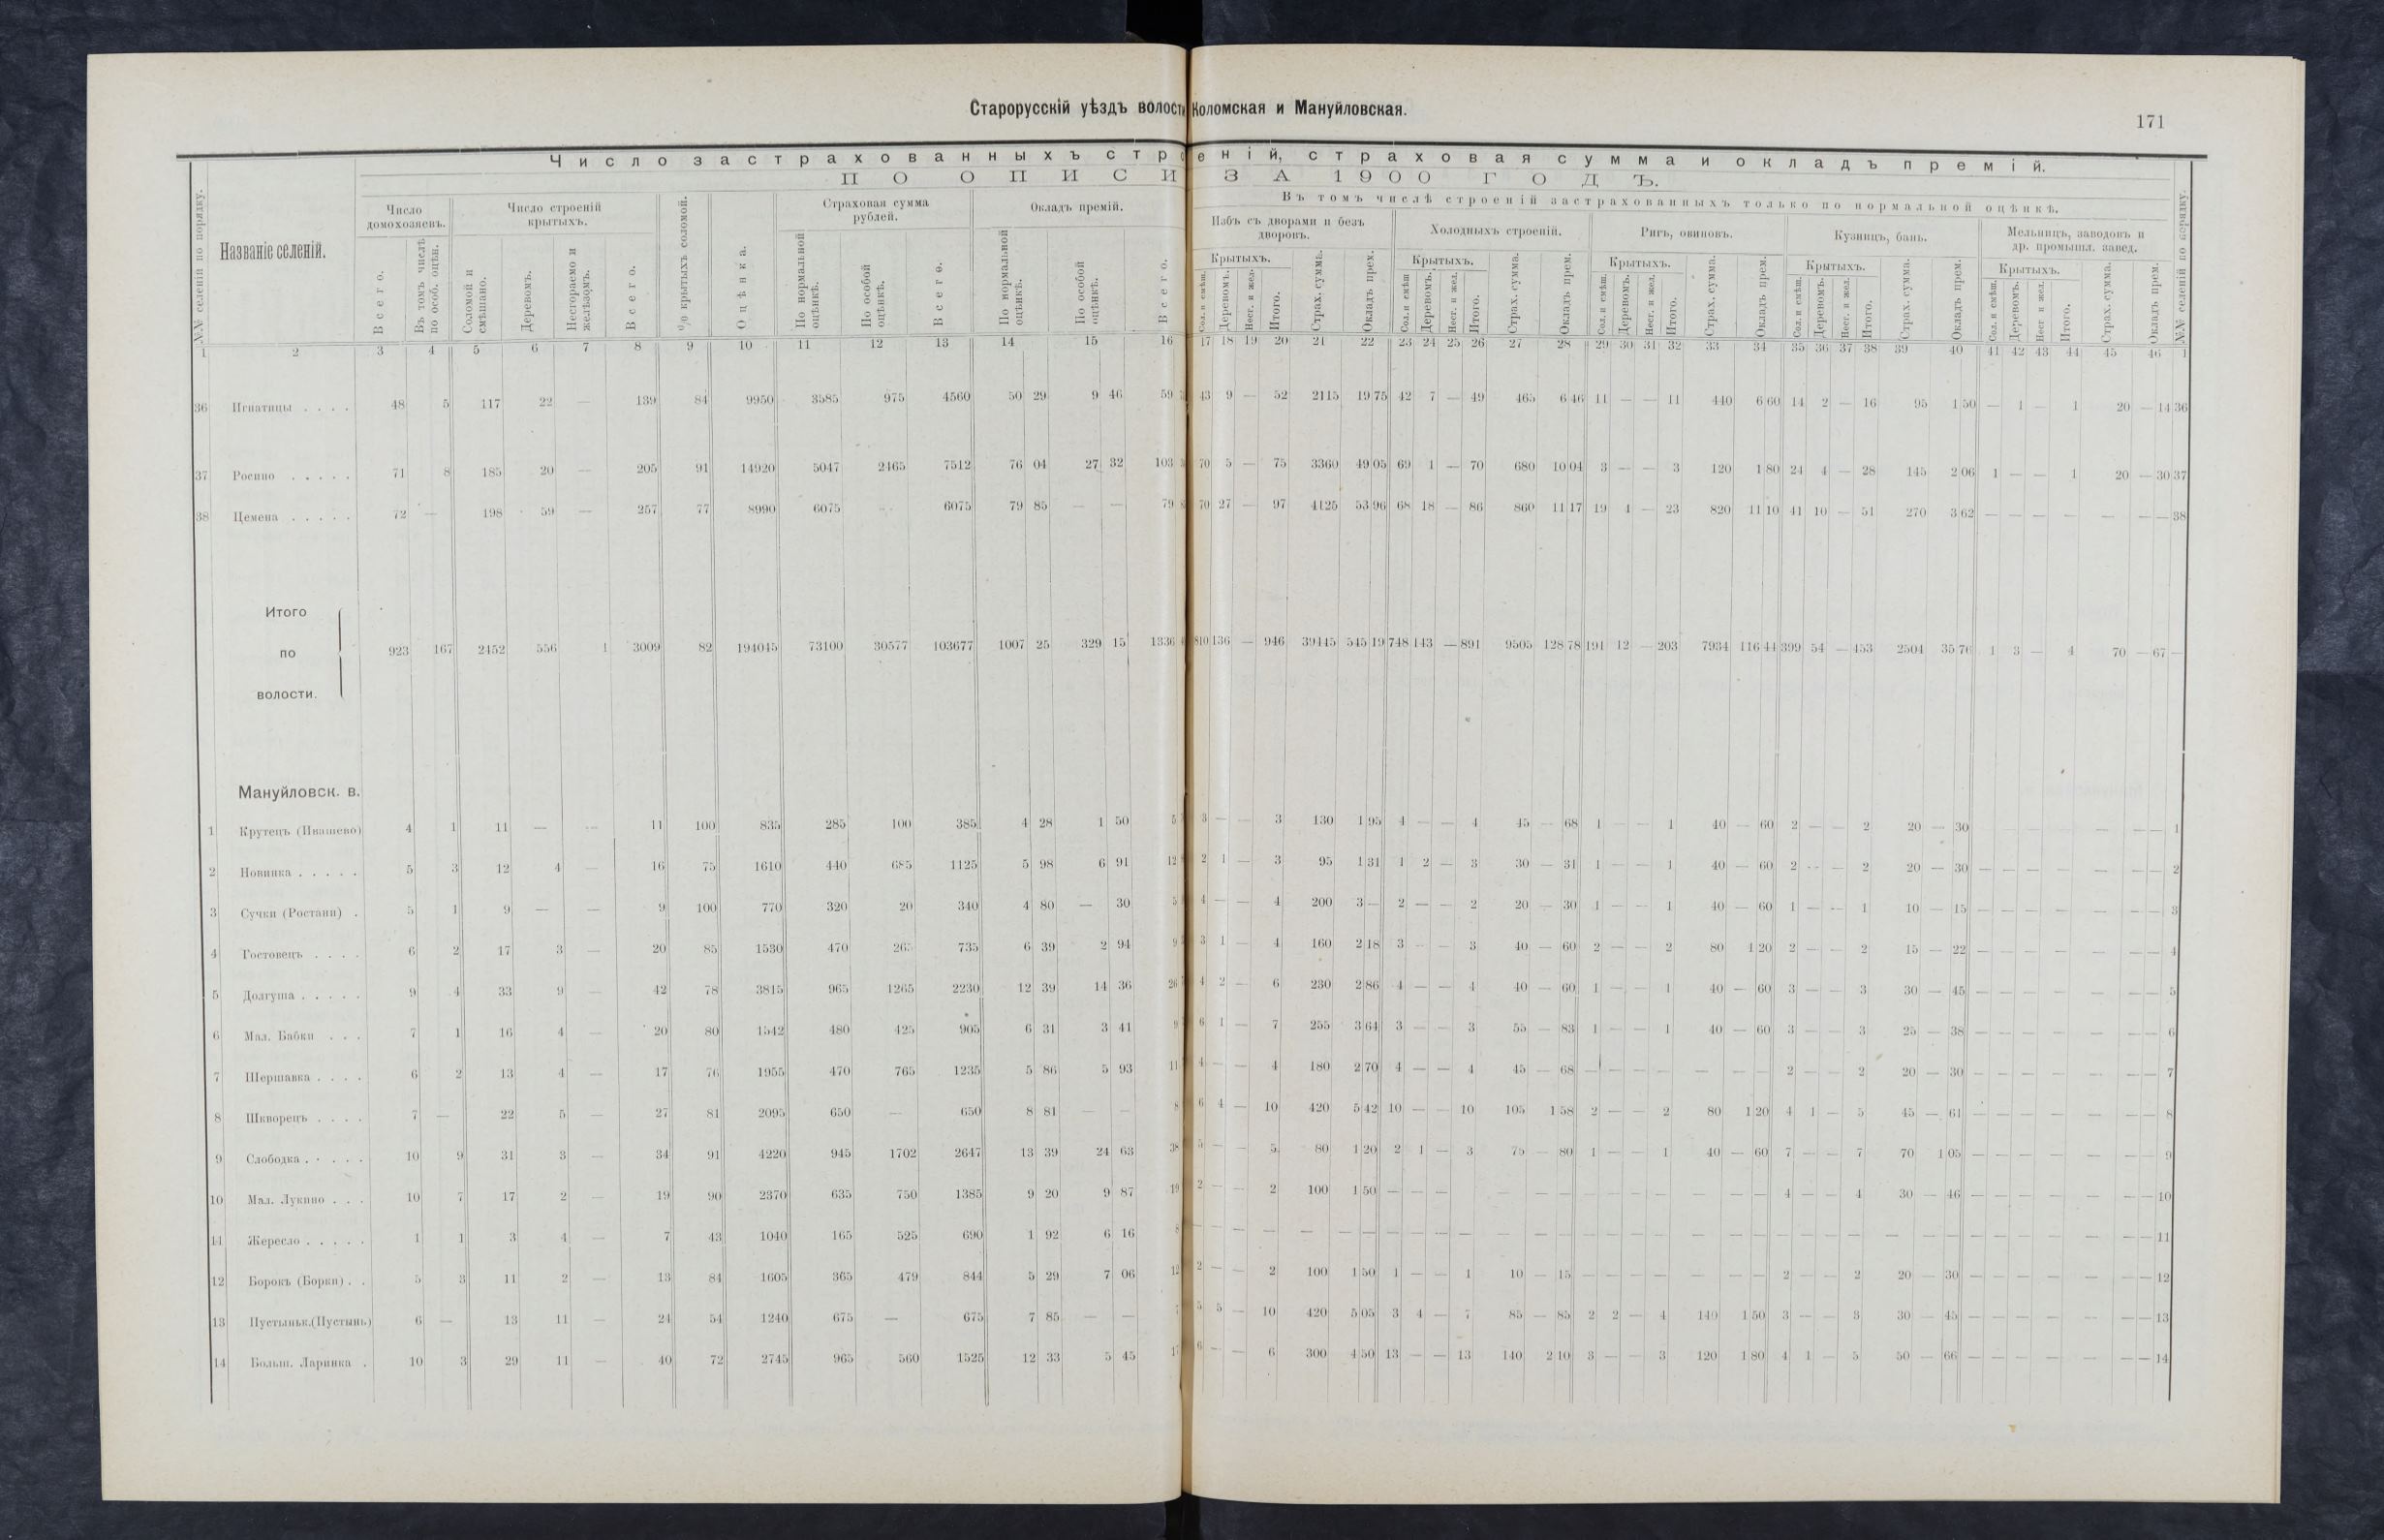 Старорусскій уѣздъ волости Коломская и Мануйловская.
171
Число застрахованныхъ строеній, страховая сумма и окладъ премій.
ПО ОПИСИ ЗА 1900 ГОДЪ.
Въ томъ числѣ строеній застрахованныхъ только по нормальной оцѣнкѣ.
№№ селеній по порядку.
Названіе селеній.
Число домохозяевъ.
Всего.
Въ томъ числѣ по особ. оцѣн.
Число строеній крытыхъ.
Соломой и смѣшано.
Деревомъ.
Несгораемо и желѣзомъ.
Всего.
% крытыхъ соломой.
Оцѣнка.
Страховая сумма рублей.
По нормальной оцѣнкѣ.
По особой оцѣнкѣ.
Всего.
Окладъ премій.
По нормальной оцѣнкѣ.
По особой оцѣнкѣ.
Всего.
Избъ съ дворами и безъ дворовъ.
Крытыхъ.
Сол. и смѣш.
Деревомъ.
Несг. и жел.
Итого.
Страх. сумма.
Окладъ прем.
Холодныхъ строеній.
Крытыхъ.
Сол. и смѣш
Деревомъ.
Несг. и жел.
Итого.
Страх. сумма.
Окладъ прем.
Ригъ, овиновъ.
Крытыхъ.
Сол. и смѣш.
Деревомъ.
Несг. и жел.
Итого.
Страх. сумма.
Окладъ прем.
Кузницъ, бань.
Крытыхъ.
Сол. и смѣш.
Деревомъ.
Несг. и жел.
Итого.
Страх. сумма.
Окладъ прем.
Мельницъ, заводовъ и др. промышл. завед.
Крытыхъ.
Сол. и смѣш.
Деревомъ.
Несг и жел.
Итого.
Страх. сумма.
Окладъ прем.
№№ селеній по порядку.
1 2 3 4 5 6 7 8 9 10 11 12 13 14 15 16 17 18 19 20 21 22 23 24 25 26 27 28 29 30 31 32 33 34 35 36 37 38 39 40 41 42 43 44 45 46 1
36 Игнатицы . . . . 48 5 117 22 — 139 84 9950 3585 975 4560 50 29 9 46 59 43 9 — 52 2115 19 75 42 7 — 49 465 6 46 11 — — 11 440 6 60 14 2 — 16 95 1 50 — 1 — 1 20 — 14 36
37 Росино . . . . . 71 8 185 20 — 205 91 14920 5047 2465 7512 76 04 27 32 103 70 5 — 75 3360 49 05 69 1 — 70 680 10 04 3 — — 3 120 1 80 24 4 — 28 145 2 06 1 — — 1 20 — 30 37
38 Цемена . . . . . 72 — 198 59 — 257 77 8990 6075 — 6075 79 85 — — 79 70 27 — 97 4125 53 96 68 18 — 86 860 11 17 19 4 — 23 820 11 10 41 10 — 51 270 3 62 — — — — — — — 38
Итого
по
волости.
923 167 2452 556 1 3009 82 194045 73100 30577 103677 1007 25 329 15 1336 810 136 — 946 39445 545 19 748 143 — 891 9505 128 78 191 12 — 203 7934 116 44 399 54 — 453 2504 35 76 1 3 — 4 70 — 67 —
Мануйловск. в.
1 Крутецъ (Ивашево) 4 1 11 — — 11 100 835 285 100 385 4 28 1 50 5 3 — — 3 130 1 95 4 — — 4 45 — 68 1 — — 1 40 — 60 2 — — 2 20 — 30 — — — — — 1
2 Новинка . . . . . 5 3 12 4 — 16 75 1610 440 685 1125 5 98 6 91 12 2 1 — 3 95 1 31 1 2 — 3 30 — 31 1 — — 1 40 — 60 2 — — 2 20 — 30 — — — — — — — 2
3 Сучки (Ростани) . 5 1 9 — — 9 100 770 320 20 340 4 80 — 30 5 4 — — 4 200 3 — 2 — — 2 20 — 30 1 — — 1 40 — 60 1 — — 1 10 — 15 — — — — — — — 3
4 Гостовецъ . . . . 6 2 17 3 — 20 85 1530 470 265 735 6 39 2 94 9 3 1 — 4 160 2 18 3 — — 3 40 — 60 2 — — 2 80 1 20 2 — — 2 15 — 22 — — — — — — — 4
5 Долгуша . . . . . 9 4 33 9 — 42 78 3815 965 1265 2230 12 39 14 36 26 4 2 — 6 230 2 86 4 — — 4 40 — 60 1 — — 1 40 — 60 3 — — 3 30 — 45 — — — — — — — 5
6 Мал. Бабки . . . 7 1 16 4 — 20 80 1542 480 425 905 6 31 3 41 9 6 1 — 7 255 3 64 3 — — 3 55 — 83 1 — — 1 40 — 60 3 — — 3 25 — 38 — — — — — — — 6
7 Шершавка . . . . 6 2 13 4 — 17 76 1955 470 765 1235 5 86 5 93 11 4 — — 4 180 2 70 4 — — 4 45 — 68 — — — — — — — 2 — — 2 20 — 30 — — — — — — — 7
8 Шкворецъ . . . . 7 — 22 5 — 27 81 2095 650 — 650 8 81 — — 8 6 4 — 10 420 5 42 10 — — 10 105 1 58 2 — — 2 80 1 20 4 1 — 5 45 — 61 — — — — — — — 8
9 Слободка . . . . . 10 9 31 3 — 34 91 4220 945 1702 2647 13 39 24 63 38 5 — — 5 80 1 20 2 1 — 3 75 — 80 1 — — 1 40 — 60 7 — — 7 70 1 05 — — — — — — — 9
10 Мал. Лукино . . . 10 7 17 2 — 19 90 2370 635 750 1385 9 20 9 87 19 2 — — 2 100 1 50 — — — — — — — — — — — — — 4 — — 4 30 — 46 — — — — — — — 10
11 Жересло . . . . . 1 1 3 4 — 7 43 1040 165 525 690 1 92 6 16 8 — — — — — — — — — — — — — — — — — — — — — — — — — — — — — — 11
12 Борокъ (Борки) . . 5 3 11 2 — 13 84 1605 365 479 844 5 29 7 06 12 2 — — 2 100 1 50 1 — — 1 10 — 15 — — — — — — — 2 — — 2 20 — 30 — — — — — — — 12
13 Пустыньк.(Пустынь) 6 — 13 11 — 24 54 1240 675 — 675 7 85 — — 7 5 5 — 10 420 5 05 3 4 — 7 85 — 85 2 2 — 4 140 1 50 3 — — 3 30 — 45 — — — — — — — 13
14 Больш. Ларинка . 10 3 29 11 — 40 72 2745 965 560 1525 12 33 5 45 17 6 — — 6 300 4 50 13 — — 13 140 2 10 3 — — 3 120 1 80 4 1 — 5 50 — 66 — — — — — — — 14